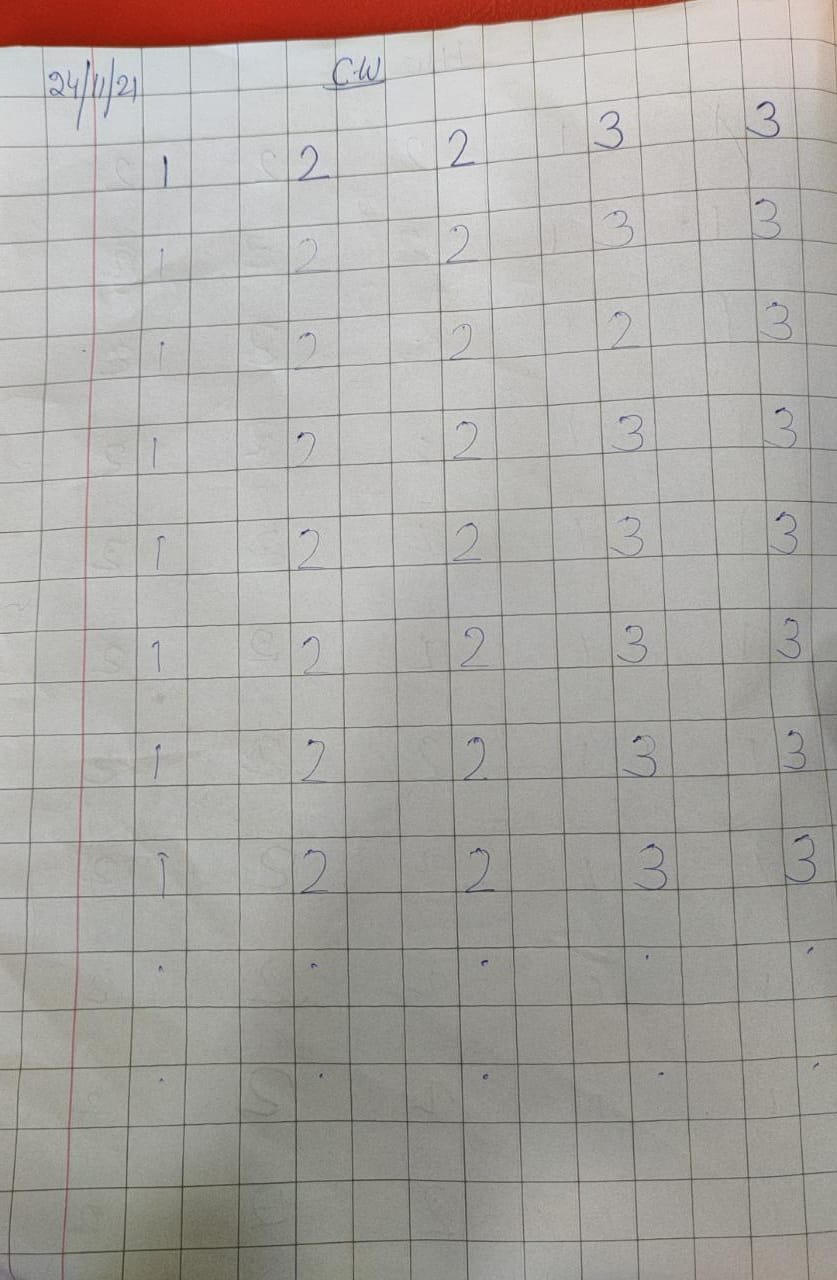 24/11/21 C.W
1 2 2 3 3
1 2 2 3 3
1 2 2 2 3
1 2 2 3 3
1 2 2 3 3
1 2 2 3 3
1 2 2 3 3
1 2 2 3 3
. . . . .
. . . . .